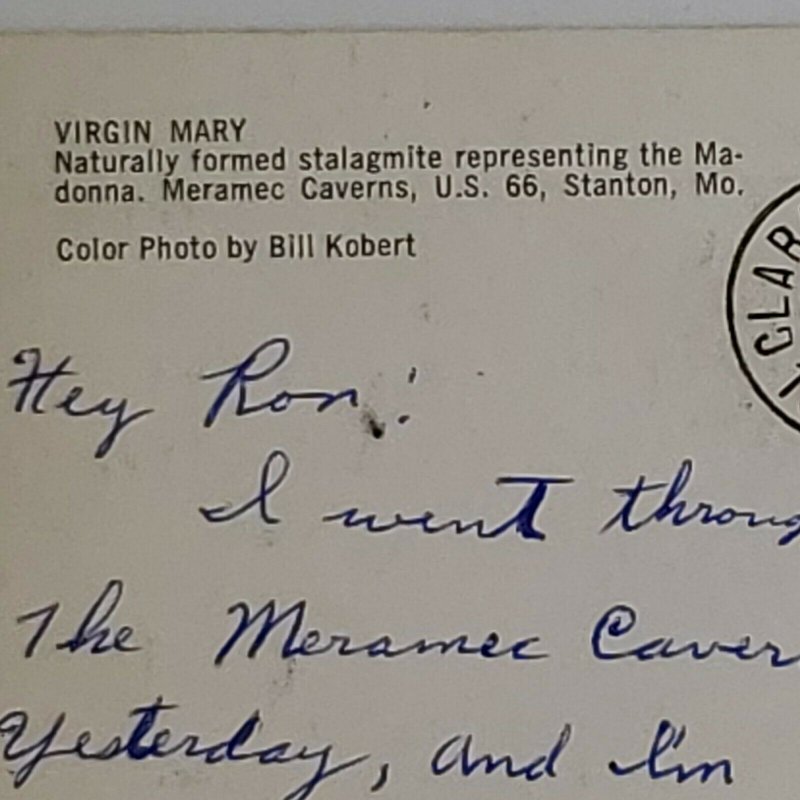 VIRGIN MARY
Naturally formed stalagmite representing the Ma-
donna. Meramec Caverns, U.S. 66, Stanton, Mo.
Color Photo by Bill Kobert
CLAR
Hey Ron!
I went throug
The Meramec Caver
Yesterday, and I'm